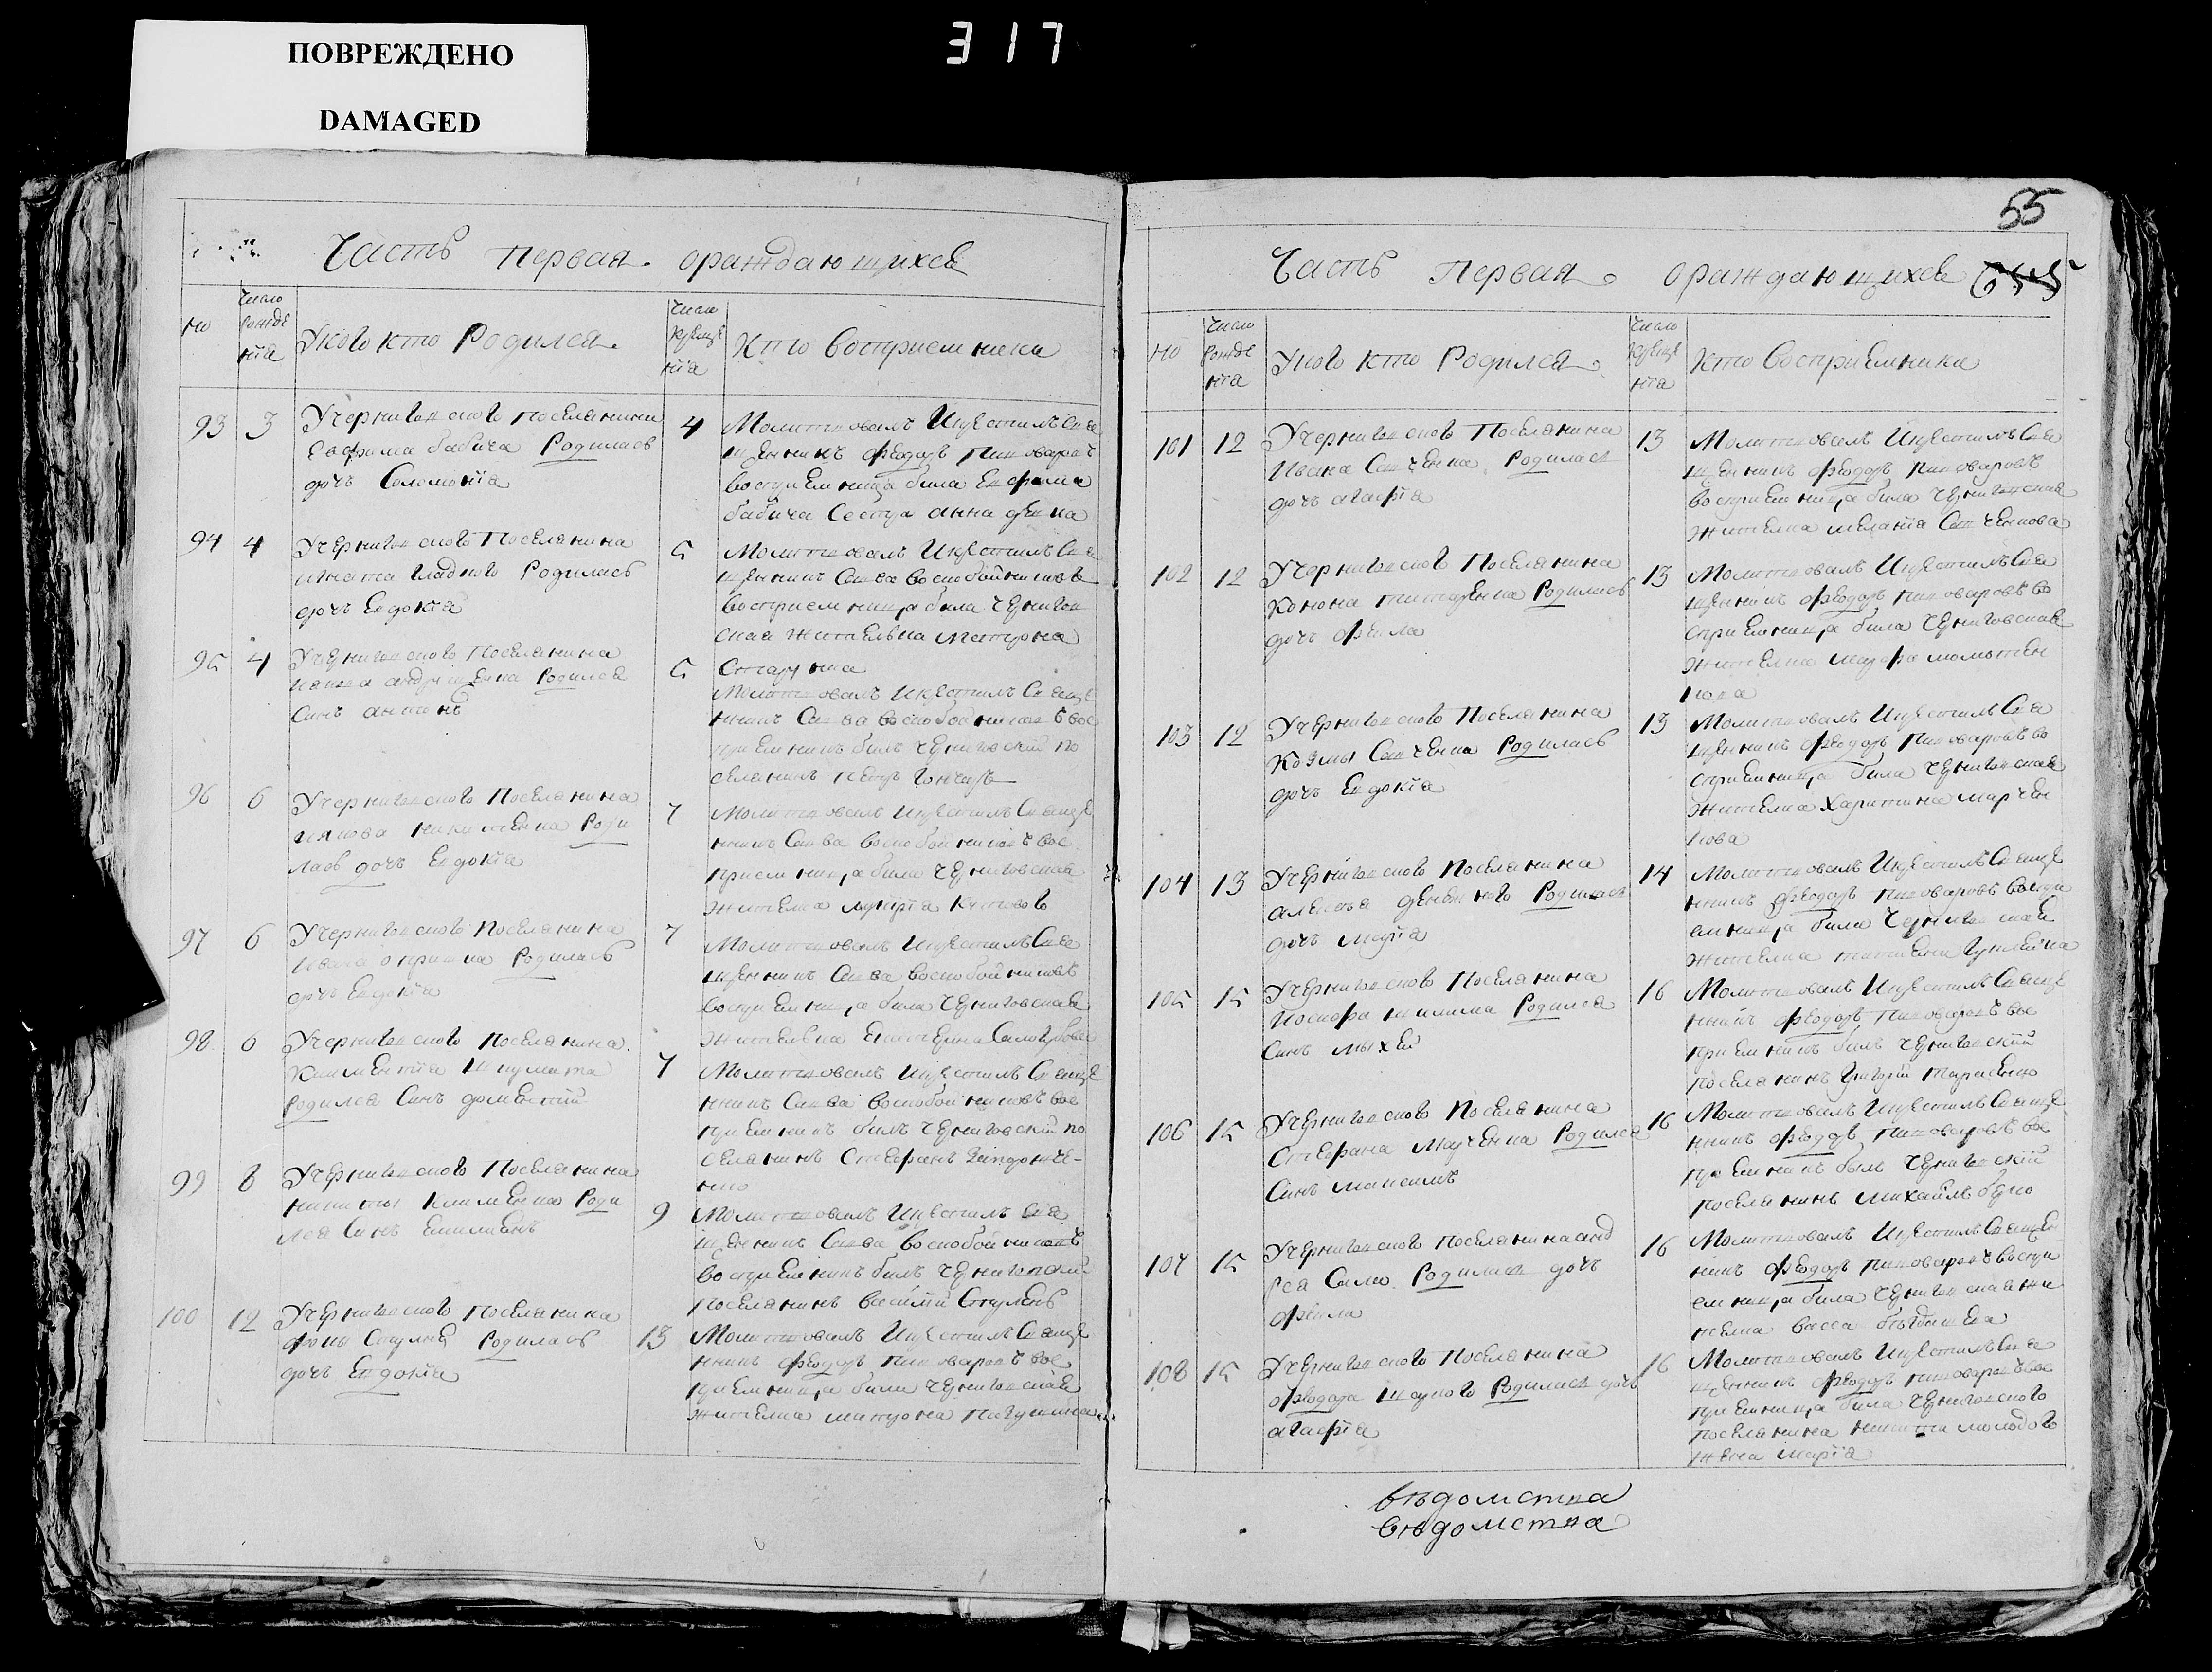 ПОВРЕЖДЕНО
DAMAGED
317
Часть первая. ораждающихся
но
Число
рожде
нїа
Укого кто Родился.
Число
Креще
нїа
Кто восприемники
93 3
Учерниговского поселянина
Евфима бабича Родилась
дочь Соломонїа
4
Молитвовалъ Икрестилъ Свя
щенникъ Феодоръ Пивоваровъ
восприемница била Евфима
бабича Сестра анна
94 4
Учерниговского Поселянина
Игната Гладкого Родилась
дочь Евдокїа
5
Молитвовалъ Икрестилъ Свя
щенникъ Савва воскобойниковъ
восприемница била Чернигов
ская жителька Матрона
95 4
Учерниговского Поселянина
андрищенка Родился
Синъ антонъ
5
Молитвовалъ Икрестилъ Свяще
нникъ Савва воскобойниковъ вос
приемникъ билъ Черниговский по
селянинъ Петръ Гончаръ
96 6
Учерниговского Поселянина
Иякова никитенка Роди
лась дочь Евдокїа
7
Молитвовалъ Икрестилъ Свяще
нникъ Савва воскобойниковъ вос
приемница била Черниговская
жителка
97 6
Учерниговского Поселянина
Ивана Родилась
дочь Евдокїа
7
Молитвовалъ Икрестилъ Свя
щенникъ Савва воскобойниковъ
восприемница била Черниговская
жителька Екатерина
98 6
Учерниговского Поселянина
Климентїа Шкумата
Родился Синъ дометий
7
Молитвовалъ Икрестилъ Свяще
нникъ Савва воскобойниковъ вос
приемникъ билъ Черниговский по
селянинъ Стефанъ
нко
99 8
Учерниговского Поселянина
никиты Клименка Роди
лся Синъ Емилианъ
9
Молитвовалъ Икрестилъ Свя
щенникъ Савва воскобойниковъ
восприемникъ билъ
поселянинъ василий
100 12
Учерниговского поселянина
Родилась
дочь Евдокїа
13
Молитвовалъ Икрестилъ Свяще
нникъ Феодоръ Пивоваровъ вос
приемница била Черниговская
жителка матрона
55
Часть Первая. ораждающихся
но
Число
рожде
нїа
Укого кто Родился.
Число
Креще
нїа
Кто восприемники
101 12
Учерниговского Поселянина
Ивана Савченка Родилася
дочь агафїа
13
Молитвовалъ Икрестилъ Свя
щенникъ Феодоръ Пивоваровъ
восприемница била Черниговская
жителка меланїа Савченкова
102 12
Учерниговского Поселянина
Конона титаренка Родилась
дочь Фекла
13
Молитвовалъ Икрестилъ Свя
щенникъ Феодоръ Пивоваровъ во
сприемница била Черниговская
жителка марфа
103 12
Учерниговского Поселянина
Козмы Савченка Родилась
дочь Евдокїа
13
Молитвовалъ Икрестилъ Свя
щенникъ Феодоръ Пивоваровъ во
сприемница била Черниговская
жителка Харитина марчен
кова
104 13
Учерниговского Поселянина
алексїа Родилась
дочь марїа
14
Молитвовалъ Икрестилъ Свяще
нникъ Феодоръ Пивоваровъ воспри
емница била Черниговская
жителка татиана
105 15
Учерниговского Поселянина
Иосифа Родился
Синъ михей
16
Молитвовалъ Икрестилъ Свяще
нникъ Феодоръ Пивоваровъ вос
приемникъ билъ Черниговский
поселянинъ Григорий Тарасенко
106 15
Учерниговского Поселянина
Стефана марченка Родился
Синъ максимъ
16
Молитвовалъ Икрестилъ Свяще
нникъ Феодоръ Пивоваровъ вос
приемникъ былъ Черниговский
поселянинъ михайлъ
107 15
Учерниговского поселянина анд
рея Сала Родилася дочь
Фекла
16
Молитвовалъ Икрестилъ Священ
никъ Феодоръ Пивоваровъ воспри
емница била Черниговская жи
телка васса
108 15
Учерниговского Поселянина
Феодора Родилася дочь
агафїа
16
Молитвовалъ Икрестилъ Свя
щенникъ Феодоръ Пивоваровъ вос
приемница била Черниговского
поселянина никити молодого
жена марїа
вѣдомства
вѣдомства